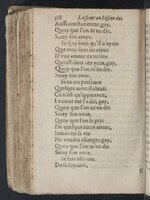 La fleur ou l'eslite des
Aussi constamment, gay,
Quoy que l'on m'en die,
Seray son amye.
Je sçay bien qu'il n'ayme
Que moy sous les cieux
D'une amour extresme
Qui est dans ses yeux, gay,
Quoy que l'on m'en die,
Seray son amie,
Si en ma presence
Quelque autre il cherit
Ce n'est qu'apparence,
Le cœur me l'a dit, gay,
Quoy que l'on m'en die
Seray son amie.
Quoy que l'on le prie
De quelque autre aimer,
Jamais en sa vie
Ne voudra changer, gay,
Quoy que l'on m'en die
Seray son amie.
Je suis asseurée
De sa loyauté,